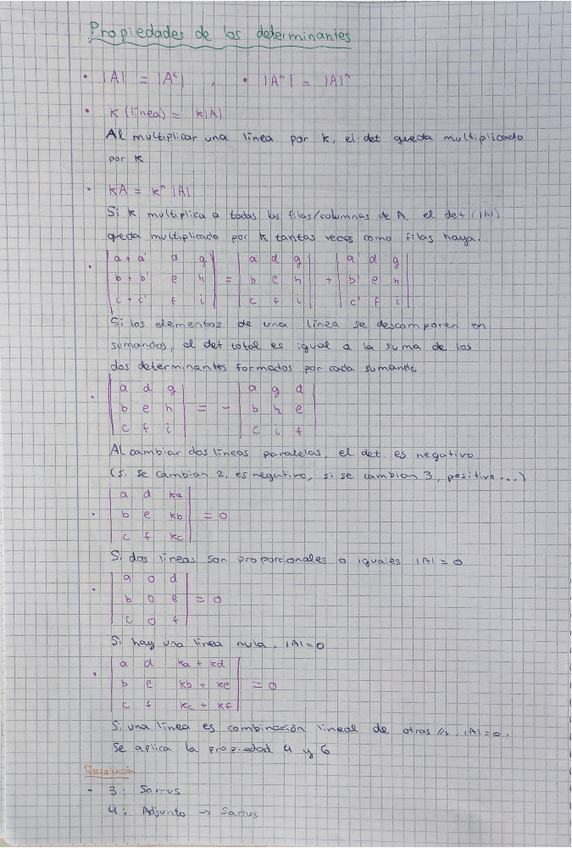 Propiedades de los determinantes
• |A| = |Aᵗ| , • |Aⁿ| = |A|ⁿ
• K (línea) = K|A|
Al multiplicar una línea por K, el det queda multiplicado
por K
• KA = Kⁿ |A|
Si K multiplica a todas las filas/columnas de A, el det (|A|)
queda multiplicado por K tantas veces como filas haya.
| a + a' d g | | a d g | | a' d g |
• | b + b' e h | = | b e h | + | b' e h |
| c + c' f i | | c f i | | c' f i |
Si los elementos de una línea se descomponen en
sumandos, el det total es igual a la suma de los
dos determinantes formados por cada sumando
| a d g | | a g d |
• | b e h | = - | b h e |
| c f i | | c i f |
Al cambiar dos líneas paralelas, el det. es negativo.
(Si se cambian 2, es negativo, si se cambian 3, positivo...)
| a d ka |
• | b e kb | = 0
| c f kc |
Si dos líneas son proporcionales o iguales |A| = 0
| a 0 d |
• | b 0 e | = 0
| c 0 f |
Si hay una línea nula, |A| = 0
| a d ka + kd |
• | b e kb + ke | = 0
| c f kc + kf |
Si una línea es combinación lineal de otras //s, |A| = 0.
Se aplica la propiedad 4 y 6
Resolución
- 3: Sarrus
4: Adjunto → Sarrus